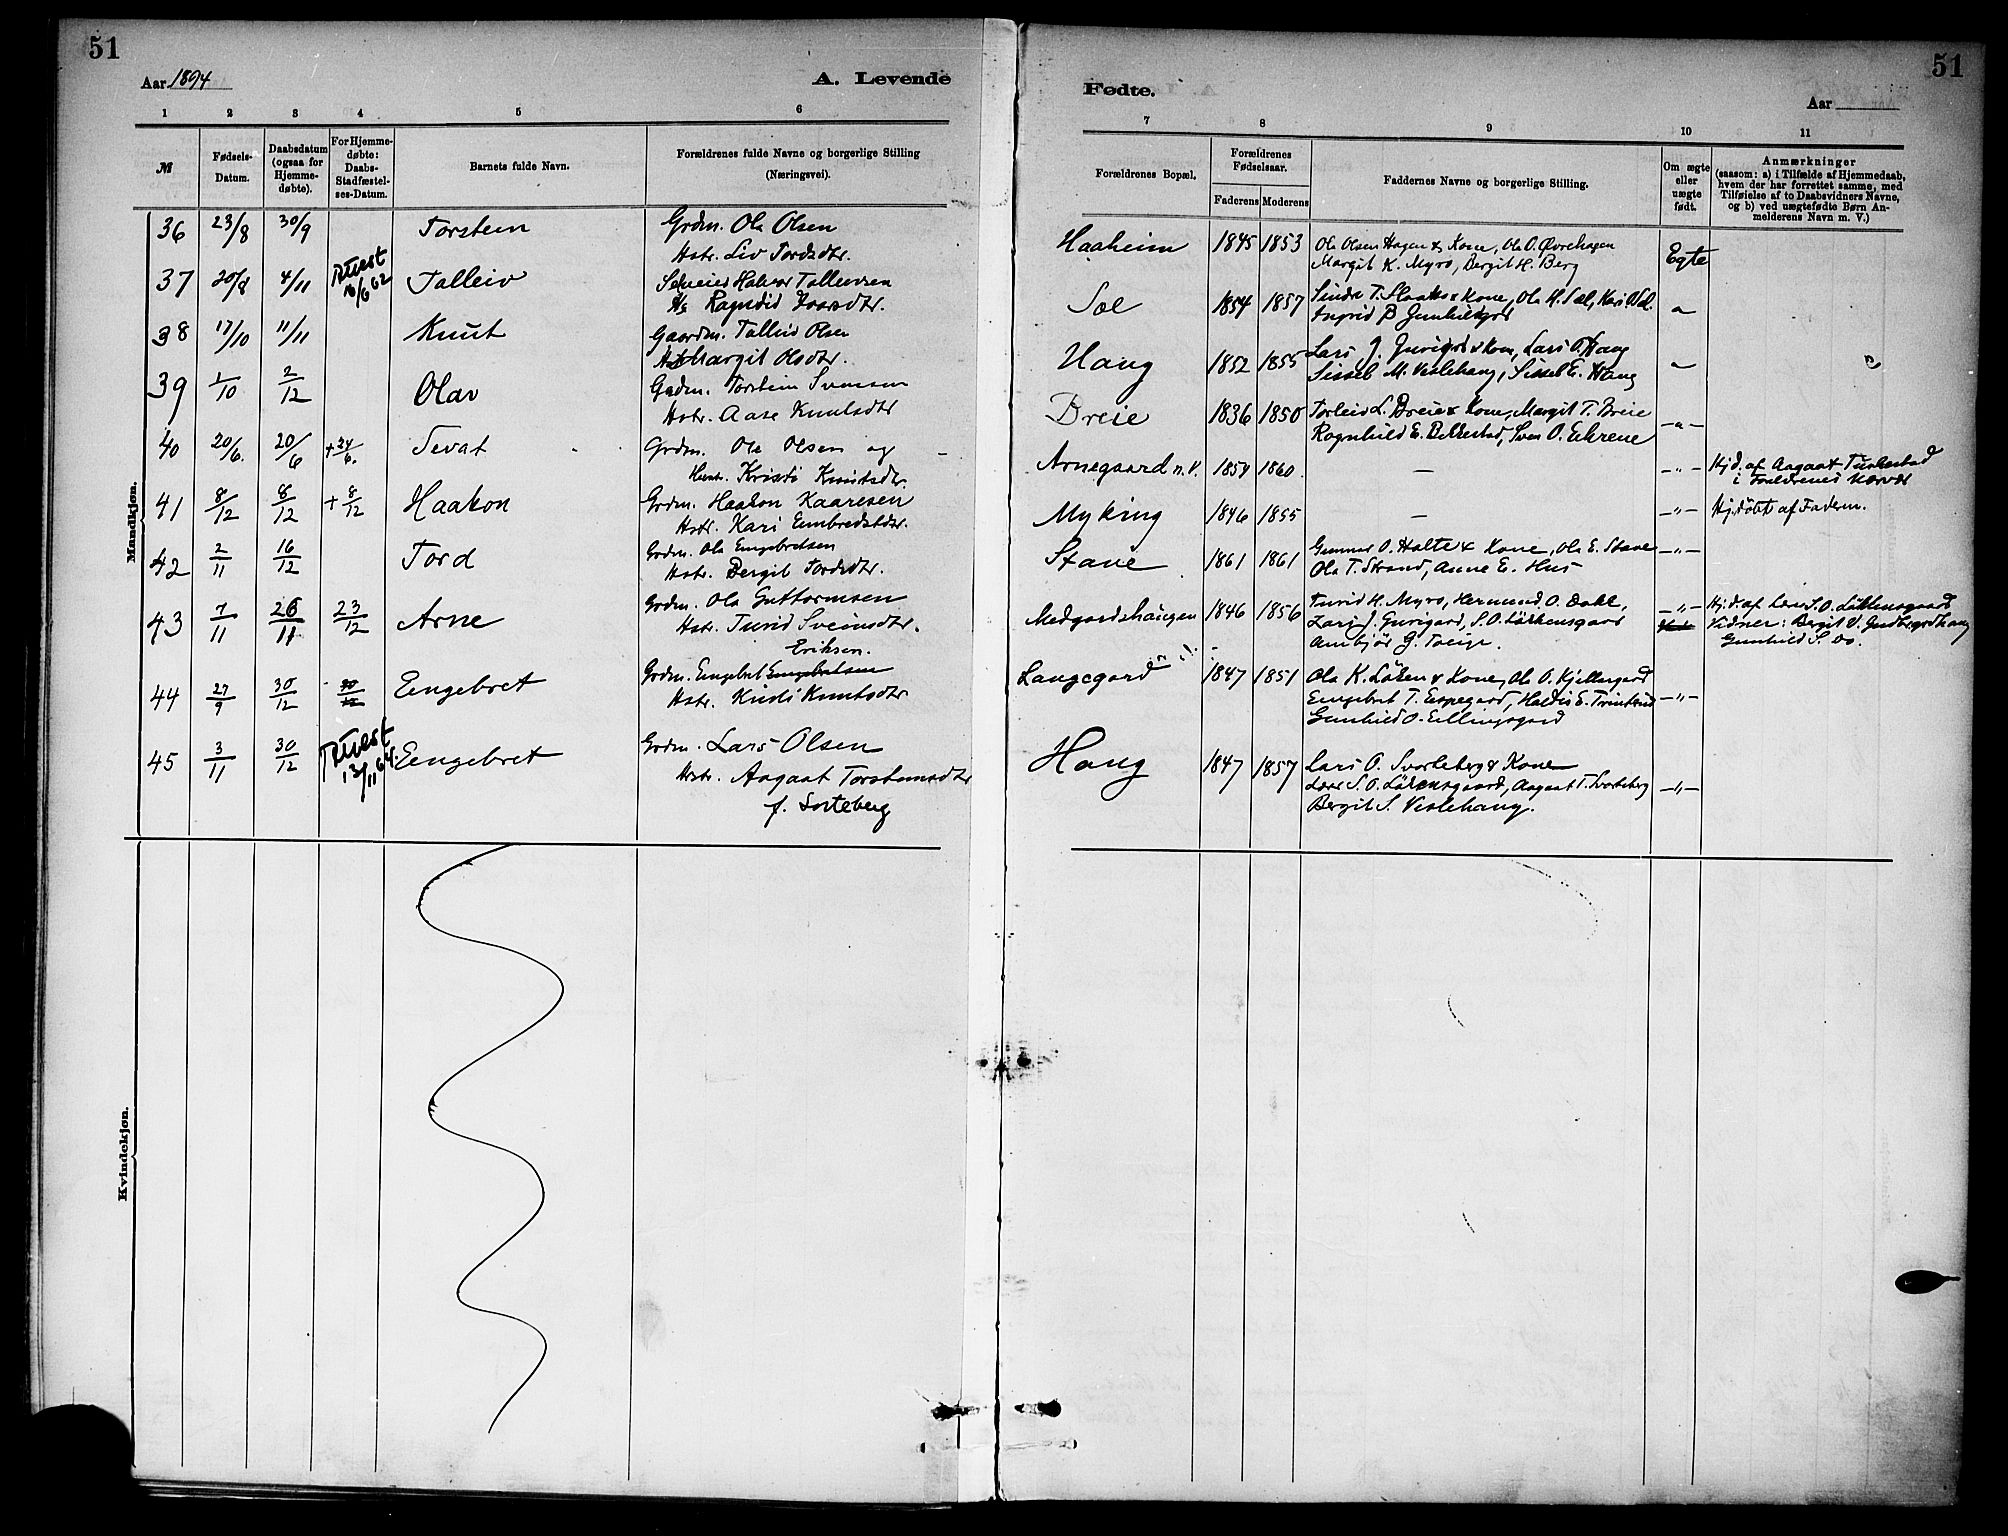 51
Aar 1894
A. Levende
1 2 3 4 5 6
№
Fødsels-
Datum.
Daabsdatum
(ogsaa for
Hjemme-
døbte).
For Hjemme-
døbte:
Daabs-
Stadfæstel-
ses-Datum.
Barnets fulde Navn.
Forældrenes fulde Navne og borgerlige Stilling
(Næringsvei).
Mandkjøn.
36 23/8 30/9 Torstein Grdm. Ola Olsen
Hstr. Liv Tordsdtr.
37 20/8 4/11 16/6 62 Talleiv Halvor Talleivsen
38 17/10 11/11 Knut Gaardm. Talleiv Olsen
Margit Olsdtr.
39 1/10 2/12 Olav Grdm. Torstein Svensen
Hstr. Aase Knutsdtr
40 20/6. 20/6 + 24/6. Sevat Grdm. Ole Olsen og
Hustr. Kristi Knutsdtr.
41 8/12 8/12 + 8/12 Haakon Grdm. Haakon Kaaresen
Hstr. Kari Embretsdtr.
42 2/11 16/12 Tord Grdm. Ola Engebretsen
Hstr. Bergit Tordsdtr.
43 7/11 26/11 23/12 Arne Grdm. Ola Guttormsen
Hstr. Turid Sveinsdtr.
Eriksen.
44 27/9 30/12 30/12 Eengebret Grdm. Eengebret Eengebretsen
Hstr. Kirsti Knutsdtr
45 3/11 30/12 13/11 64. Eengebret Grdm. Lars Olsen
Hstr. Aagaat Torsteinsdtr
f. Sorteberg
Kvindekjøn.
51
Fødte.
Aar
7 8 9 10 11
Forældrenes Bopæl.
Forældrenes
Fødselsaar.
Faderens Moderens
Faddernes Navne og borgerlige Stilling.
Om ægte
eller
uægte
født.
Anmærkninger
(saasom: a) i Tilfælde af Hjemmedaab,
hvem der har forrettet samme, med
Tilføielse af to Daabsvidners Navne,
og b) ved uægtefødte Børn An-
melderens Navn m. V.)
Haaheim 1845 1853 Ola Olsen Hagen & Kone, Ole O. Øvrehagen
Margit K. Myro, Bergit H. Berg Egte
Sæl 1854 1857 & Kone, Ola H. Sæl, Kari
Ingrid B
Haug 1852 1855 Lars J. & Kone, Lars O. Haug
Sissel M. Veslehaug, Sissel E. Haug
Breie 1836 1850 Torleiv L. Breie & Kone, Margit T. Breie
Ragnhild E. Bekkestad, Sven O. -"-
Arnegaard n. V. 1854 1860. — -"- Hjd. af Aagaat
i Foreldrenes
Myking 1846 1855 — -"- Hj.døbt af Faderen.
Stave 1861 1861 Gunnar O. Halte & Kone, Ole E. Stave -"-
Ola T. Strand, Anne E. Hus
Medgardshaugen 1846 1856 Turid H. Myro, Hermund O. Dokk, -"- Hj.d. af Lærer S. O. Løkkensgaard
Lars J. Gurigard, S. O. Løkkensgaard Vidner: Bergit O.
G. Gunhild S. Do.
Langegard 1847 1851 Ola K. Løken & Kone, Ole O. Kjellergard
Eengebret T. Espegard, Haldis E. -"-
Gunhild O. Ellingsgard
Haug 1847 1857 Lars O. Svarteberg & Kone
Lærer S. O. Løkensgaard, Aagaat T. Svarteberg -"-
Bergit S. Veslehaug.